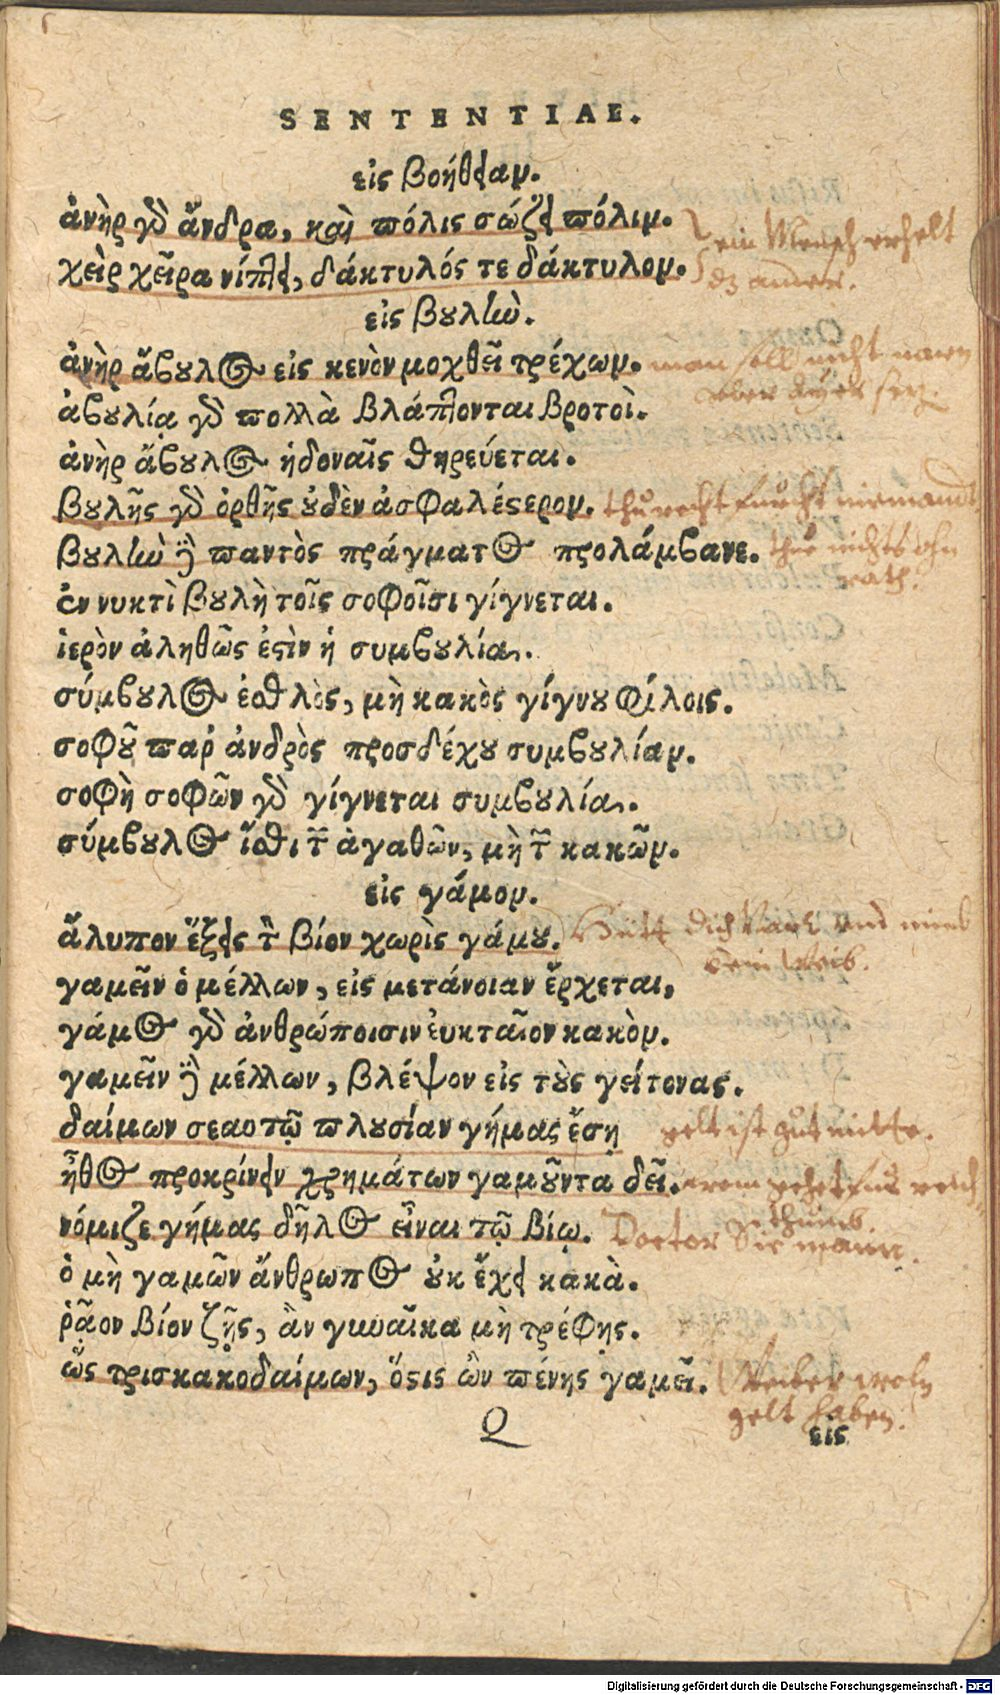 SENTENTIAE.
εἰς βοήθειαν.
ἀνὴρ γὸ ἄνδρα, καὶ πόλις σώζει πόλιν.
χεὶρ χεῖρα νίπτει, δάκτυλός τε δάκτυλον.
ein Mensch erhelt
dz ander.
εἰς βουλὼ.
ἀνὴρ ἄβουλος εἰς κενὸν μοχθεῖ τρέχων.
man soll nicht
ἀβουλίᾳ γὸ πολλὰ βλάπτονται βροτοὶ.
ἀνὴρ ἄβουλος ἡδοναῖς θηρεύεται.
βουλῆς γὸ ὀρθῆς οὐδὲν ἀσφαλέστερον.
thu recht furcht niemandt
βουλὼ ἢ παντὸς πράγματος προλάμβανε.
thue nichts ohn
rath.
ἐν νυκτὶ βουλὴ τοῖς σοφοῖσι γίγνεται.
ἱερὸν ἀληθῶς ἐστὶν ἡ συμβουλία.
σύμβουλος ἐσθλὸς, μὴ κακὸς γίγνου φίλοις.
σοφοῦ παρ' ἀνδρὸς προσδέχου συμβουλίαν.
σοφὴ σοφῶν γὸ γίγνεται συμβουλία.
σύμβουλος ἴσθι τῶν ἀγαθῶν, μὴ τῶν κακῶν.
εἰς γάμον.
ἄλυπον ἕξεις τὸν βίον χωρὶς γάμου.
Hütt dich und nimb
kein Weib.
γαμεῖν ὁ μέλλων, εἰς μετάνοιαν ἔρχεται,
γάμος γὸ ἀνθρώποισιν ἐυκταῖον κακὸν.
γαμεῖν ἢ μέλλων, βλέψον εἰς τοὺς γείτονας.
δαίμων σεαοτῷ πλουσίαν γήμας ἔσῃ
gelt ist gut mitte.
ἦθος προκρίνειν χρημάτων γαμοῦντα δεῖ.
thumb.
νόμιζε γήμας δῆλος εἶναι τῷ βίῳ.
Doctor Sie mann
ὁ μὴ γαμῶν ἄνθρωπος οὐκ ἔχει κακὰ.
ῥᾷον βίον ζῇς, ἂν γυναῖκα μὴ τρέφῃς.
ὥς τρισκακοδαίμων, ὅστις ὢν πένης γαμεῖ.
Weiber woln
gelt haben.
Q
εἰς
Digitalisierung gefördert durch die Deutsche Forschungsgemeinschaft - DFG